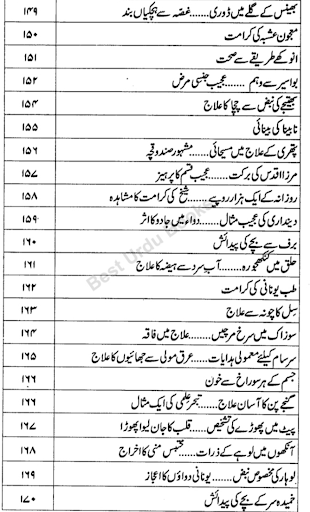 بھینس کے گلے میں ڈوری.......غصہ سے ہچکیاں بند ۱۴۹
معجون عشبہ کی کرامت ۱۵۰
انوکھے طریقے سے صحت ۱۵۱
بواسیر سے وہم.......عجیب جنسی مرض ۱۵۲
بھتیجے کی نبض سے چچا کا علاج ۱۵۴
نابینا کی بینائی ۱۵۵
پتھری کے علاج میں مسیحائی.......مشہور صندوقچہ ۱۵۶
مرزا اقدس کی برکت.......عجیب قسم کا پرہیز ۱۵۷
روزانہ کے ایک ہزار روپے.......شیخ کی کرامت کا مشاہدہ ۱۵۸
دینداری کی عجیب مثال.......دواء میں جادو کا اثر ۱۵۹
برف سے بچے کی پیدائش ۱۶۰
حلق میں کنکھجورہ.......آب سرد سے ہیضہ کا علاج ۱۶۱
طب یونانی کی کرامت ۱۶۲
سِل کا چونہ سے علاج ۱۶۳
سوزاک میں سرخ مرچیں.......علاج میں فاقہ ۱۶۴
سرسام کیلئے معمولی ہدایات.......عرق مولی سے چھائیوں کا علاج ۱۶۵
جسم کے ہر سوراخ سے خون ۱۶۶
گنجے پن کا آسان علاج.......تبحر علمی کی ایک مثال ۱۶۶
پیٹ میں پھوڑے کی تشخیص.......قلب کا جان لیوا پھوڑا ۱۶۷
آنکھوں میں لوہے کے ذرات.......محتبس منی کا اخراج ۱۶۸
لوہار کی مخصوص نبض.......یونانی دواؤں کا اعجاز ۱۶۹
خمیدہ سر کے بچے کی پیدائش ۱۷۰
Best Urdu Books